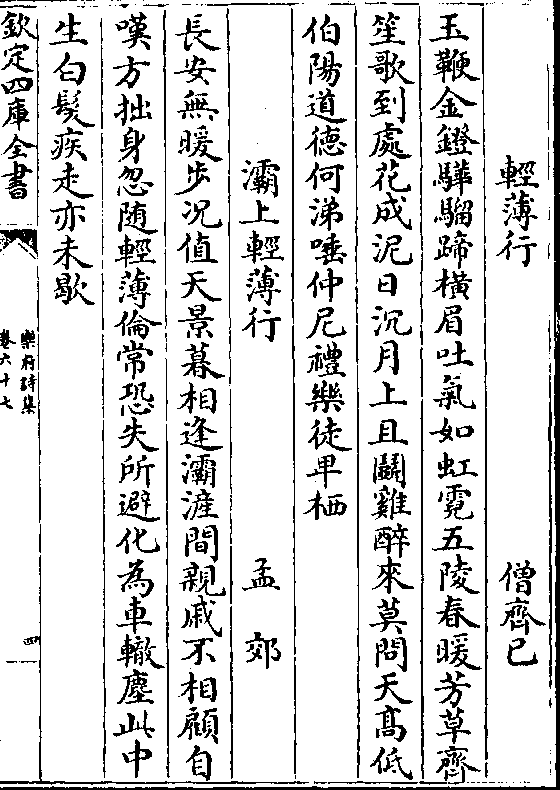 輕薄行 僧齊已
玉鞭金鐙驊騮蹄橫眉吐氣如虹霓五陵春暖芳草齊
笙歌到處花成泥日沉月上且鬬雞醉來莫問天髙低
伯陽道德何涕唾仲尼禮樂徒卑栖
灞上輕薄行 孟郊
長安無暖步况值天景暮相逢灞滻間親戚不相顧自
嘆方拙身忽随輕薄倫常恐失所避化為車轍塵此中
生白髮疾走亦未歇
欽定四庫全書
樂府詩集
卷六十七
四